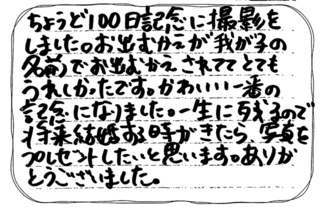 ちょうど100日記念に撮影を
しました。お出むかえが我が子の
名前でお出むかえされててとても
うれしかったです。かわいい一番の
記念になりました。一生に残るので
将来結婚する時がきたら、写真を
プレゼントしたいと思います。ありが
とうございました。